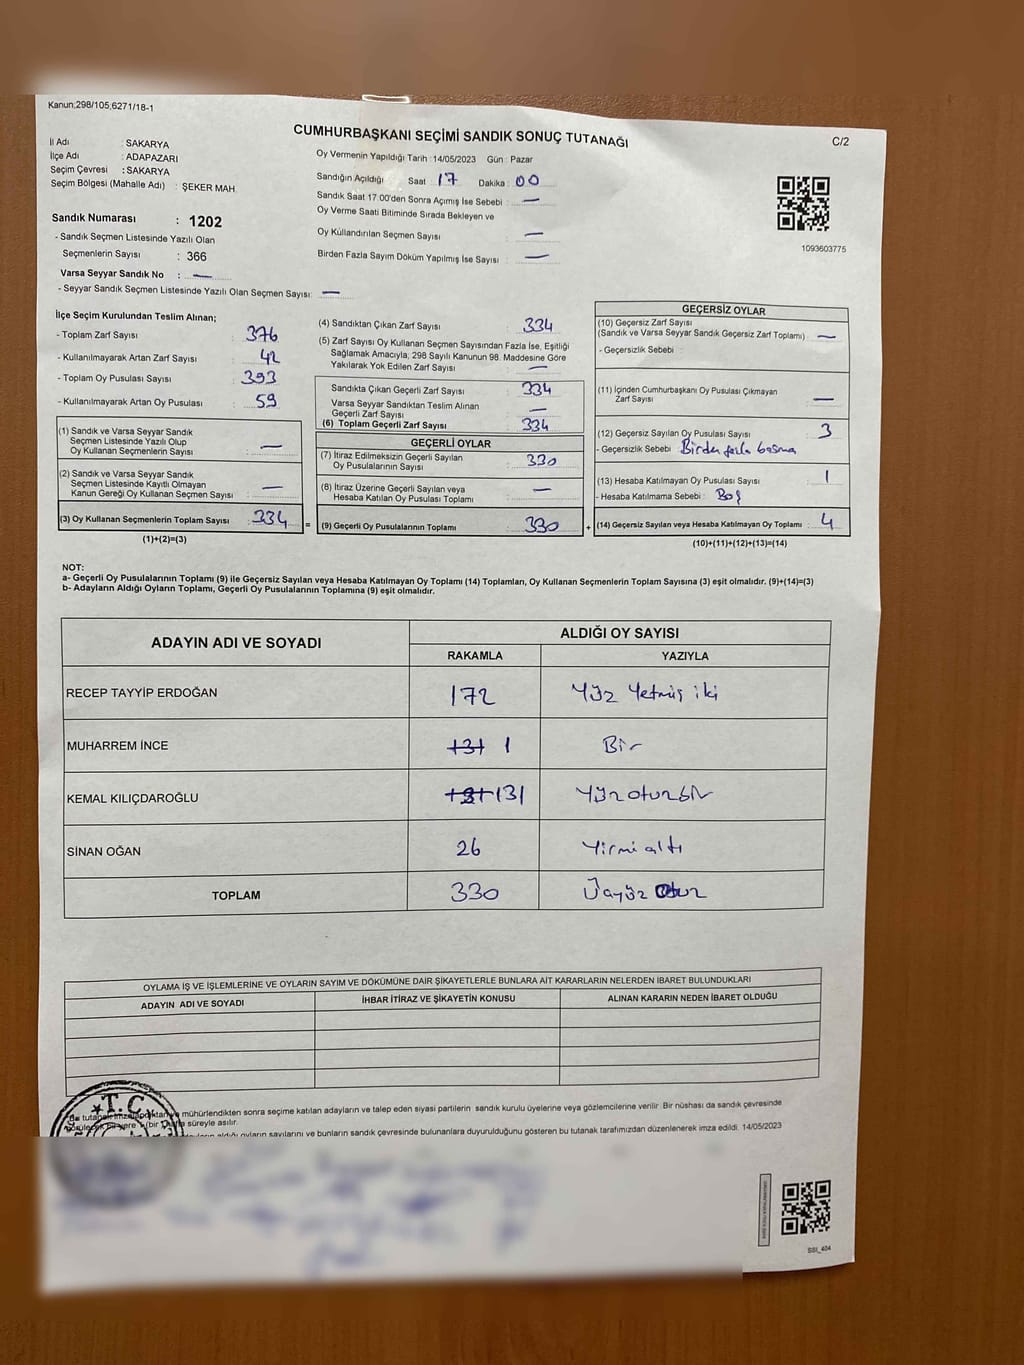 Kanun;298/105,6271/18-1
CUMHURBAŞKANI SEÇİMİ SANDIK SONUÇ TUTANAĞI
C/2
İl Adı : SAKARYA
İlçe Adı : ADAPAZARI
Seçim Çevresi : SAKARYA
Seçim Bölgesi (Mahalle Adı) : ŞEKER MAH.
Sandık Numarası : 1202
- Sandık Seçmen Listesinde Yazılı Olan
Seçmenlerin Sayısı : 366
Varsa Seyyar Sandık No : —
- Seyyar Sandık Seçmen Listesinde Yazılı Olan Seçmen Sayısı: —
Oy Vermenin Yapıldığı Tarih :14/05/2023 Gün : Pazar
Sandığın Açıldığı Saat 17 Dakika : 00
Sandık Saat 17.00'den Sonra Açımış İse Sebebi : —
Oy Verme Saati Bitiminde Sırada Bekleyen ve
Oy Kullandırılan Seçmen Sayısı : —
Birden Fazla Sayım Döküm Yapılmış İse Sayısı : —
1093603775
İlçe Seçim Kurulundan Teslim Alınan;
- Toplam Zarf Sayısı : 376
- Kullanılmayarak Artan Zarf Sayısı : 42
- Toplam Oy Pusulası Sayısı : 393
- Kullanılmayarak Artan Oy Pusulası : 59
(1) Sandık ve Varsa Seyyar Sandık
Seçmen Listesinde Yazılı Olup
Oy Kullanan Seçmenlerin Sayısı : —
(2) Sandık ve Varsa Seyyar Sandık
Seçmen Listesinde Kayıtlı Olmayan
Kanun Gereği Oy Kullanan Seçmen Sayısı : —
(3) Oy Kullanan Seçmenlerin Toplam Sayısı : 334
(1)+(2)=(3)
(4) Sandıktan Çıkan Zarf Sayısı : 334
(5) Zarf Sayısı Oy Kullanan Seçmen Sayısından Fazla İse, Eşitliği
Sağlamak Amacıyla; 298 Sayılı Kanunun 98. Maddesine Göre
Yakılarak Yok Edilen Zarf Sayısı : —
Sandıkta Çıkan Geçerli Zarf Sayısı : 334
Varsa Seyyar Sandıktan Teslim Alınan
Geçerli Zarf Sayısı : —
(6) Toplam Geçerli Zarf Sayısı : 334
GEÇERLİ OYLAR
(7) İtiraz Edilmeksizin Geçerli Sayılan
Oy Pusulalarının Sayısı : 330
(8) İtiraz Üzerine Geçerli Sayılan veya
Hesaba Katılan Oy Pusulası Toplamı : —
= (9) Geçerli Oy Pusulalarının Toplamı : 330 +
GEÇERSİZ OYLAR
(10) Geçersiz Zarf Sayısı
(Sandık ve Varsa Seyyar Sandık Geçersiz Zarf Toplamı) : —
- Geçersizlik Sebebi :
(11) İçinden Cumhurbaşkanı Oy Pusulası Çıkmayan
Zarf Sayısı : —
(12) Geçersiz Sayılan Oy Pusulası Sayısı : 3
- Geçersizlik Sebebi : Birden fazla basma
(13) Hesaba Katılmayan Oy Pusulası Sayısı : 1
- Hesaba Katılmama Sebebi : Boş
(14) Geçersiz Sayılan veya Hesaba Katılmayan Oy Toplamı : 4
(10)+(11)+(12)+(13)=(14)
NOT:
a- Geçerli Oy Pusulalarının Toplamı (9) ile Geçersiz Sayılan veya Hesaba Katılmayan Oy Toplamı (14) Toplamları, Oy Kullanan Seçmenlerin Toplam Sayısına (3) eşit olmalıdır. (9)+(14)=(3)
b- Adayların Aldığı Oyların Toplamı, Geçerli Oy Pusulalarının Toplamına (9) eşit olmalıdır.
ADAYIN ADI VE SOYADI
ALDIĞI OY SAYISI
RAKAMLA YAZIYLA
RECEP TAYYİP ERDOĞAN 172 Yüz Yetmiş iki
MUHARREM İNCE 131 1 Bir
KEMAL KILIÇDAROĞLU 131 Yüzotuzbir
SİNAN OĞAN 26 Yirmialtı
TOPLAM 330 Üçyüz Otuz
OYLAMA İŞ VE İŞLEMLERİNE VE OYLARIN SAYIM VE DÖKÜMÜNE DAİR ŞİKAYETLERLE BUNLARA AİT KARARLARIN NELERDEN İBARET BULUNDUKLARI
ADAYIN ADI VE SOYADI İHBAR İTİRAZ VE ŞİKAYETİN KONUSU ALINAN KARARIN NEDEN İBARET OLDUĞU
T.C.
mühürlendikten sonra seçime katılan adayların ve talep eden siyasi partilerin sandık kurulu üyelerine veya gözlemcilerine verilir. Bir nüshası da sandık çevresinde
bir süreyle asılır.
aldığı oyların sayılarını ve bunların sandık çevresinde bulunanlara duyurulduğunu gösteren bu tutanak tarafımızdan düzenlenerek imza edildi. 14/05/2023
SSI_404